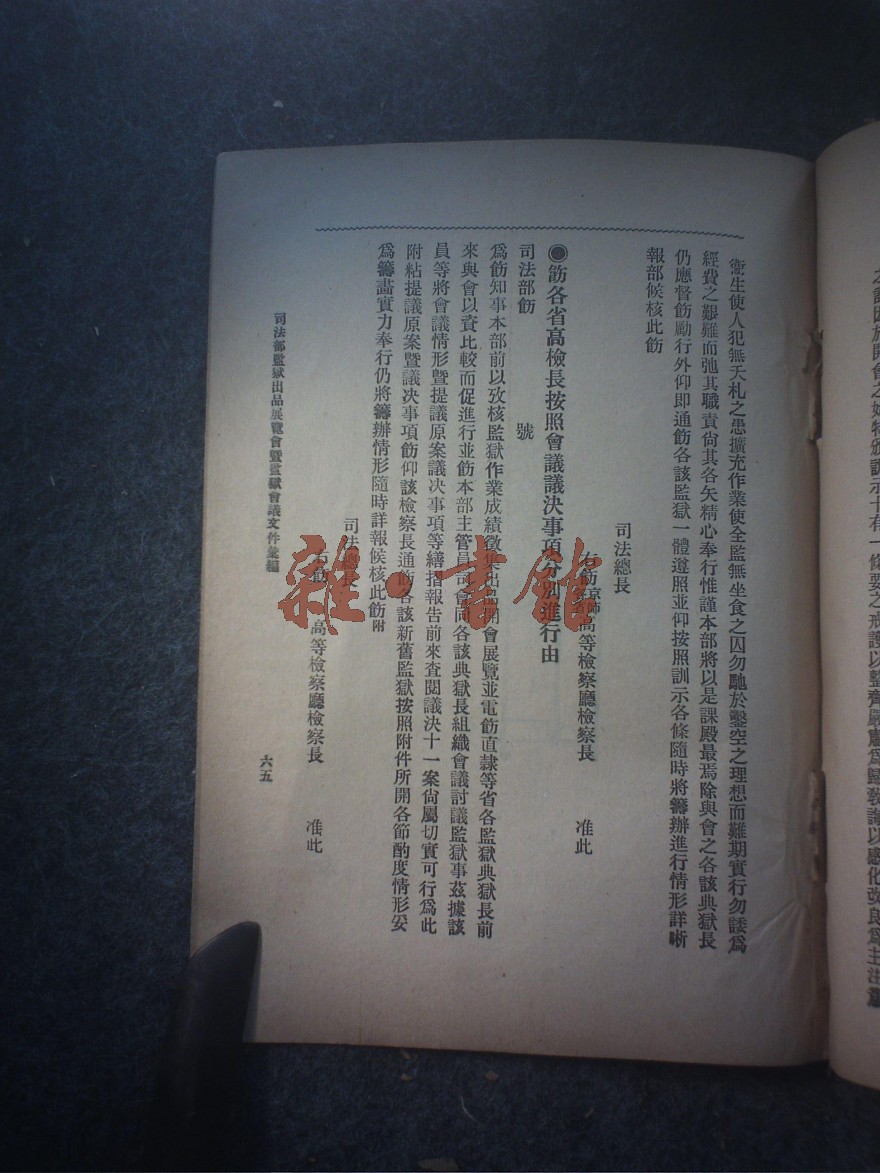 衞生使人犯無夭札之患擴充作業使全監無坐食之囚勿馳於鑿空之理想而難期實行勿諉爲
經費之艱難而弛其職責尙其各矢精心奉行惟謹本部將以是課殿最焉除與會之各該典獄長
仍應督飭勵行外仰卽通飭各該監獄一體遵照並仰按照訓示各條隨時將籌辦進行情形詳晰
報部候核此飭
司法總長
右飭京師高等檢察廳檢察長 准此
◉飭各省高檢長按照會議議決事項分別進行由
司法部飭 號
爲飭知事本部前以攷核監獄作業成績徵集出品開會展覽並電飭直隸等省各監獄典獄長前
來與會以資比較而促進行並飭本部主管員司會同各該典獄長組織會議討議監獄事茲據該
員等將會議情形暨提議原案議決事項等繕摺報告前來查閱議決十一案尙屬切實可行爲此
附粘提議原案暨議決事項飭仰該檢察長通飭各該新舊監獄按照附件所開各節酌度情形妥
爲籌畫實力奉行仍將籌辦情形隨時詳報候核此飭附
司法總長
右飭 高等檢察廳檢察長 准此
司法部監獄出品展覽會暨監獄會議文件彙編
六五
雜·書館
之諸因於開會之始特頒訓示十有一條要之戒護以整齊嚴肅爲歸敎誨以感化改良爲主注重